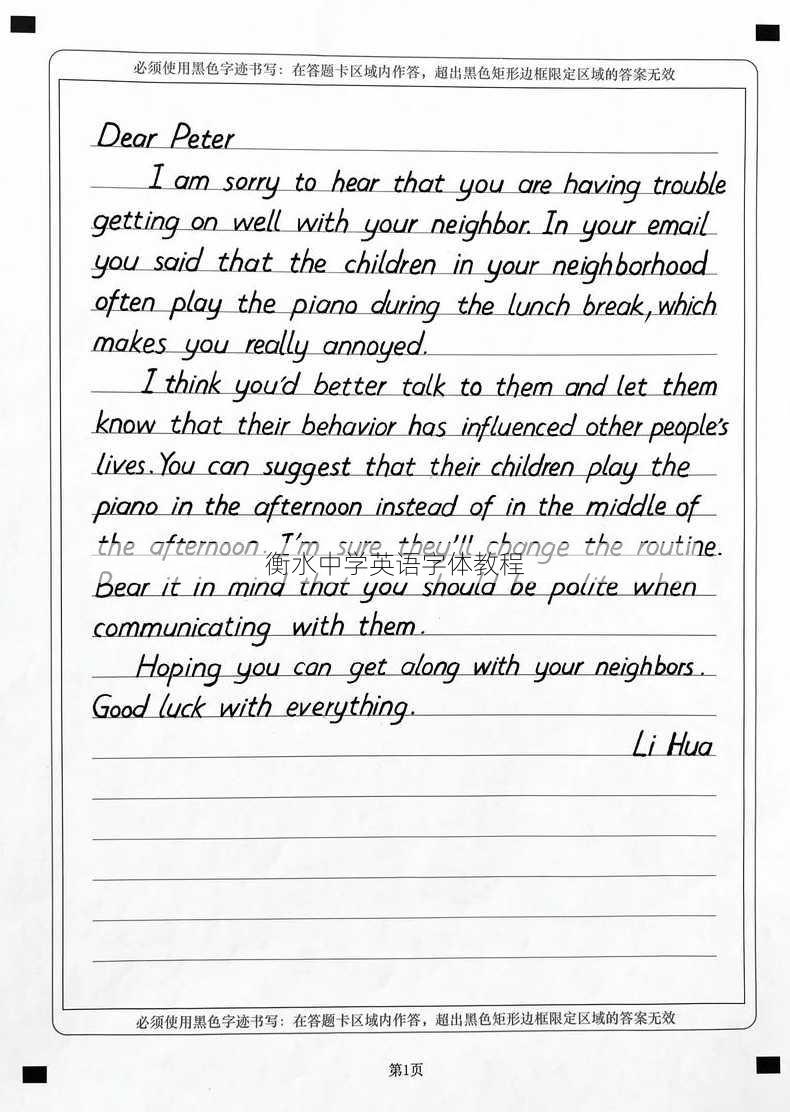 必须使用黑色字迹书写：在答题卡区域内作答，超出黑色矩形边框限定区域的答案无效
Dear Peter
I am sorry to hear that you are having trouble
getting on well with your neighbor. In your email
you said that the children in your neighborhood
often play the piano during the lunch break, which
makes you really annoyed.
I think you'd better talk to them and let them
know that their behavior has influenced other people's
lives. You can suggest that their children play the
piano in the afternoon instead of in the middle of
the afternoon. I'm sure they'll change the routine.
衡水中学英语字体教程
Bear it in mind that you should be polite when
communicating with them.
Hoping you can get along with your neighbors.
Good luck with everything.
Li Hua
必须使用黑色字迹书写：在答题卡区域内作答，超出黑色矩形边框限定区域的答案无效
第1页